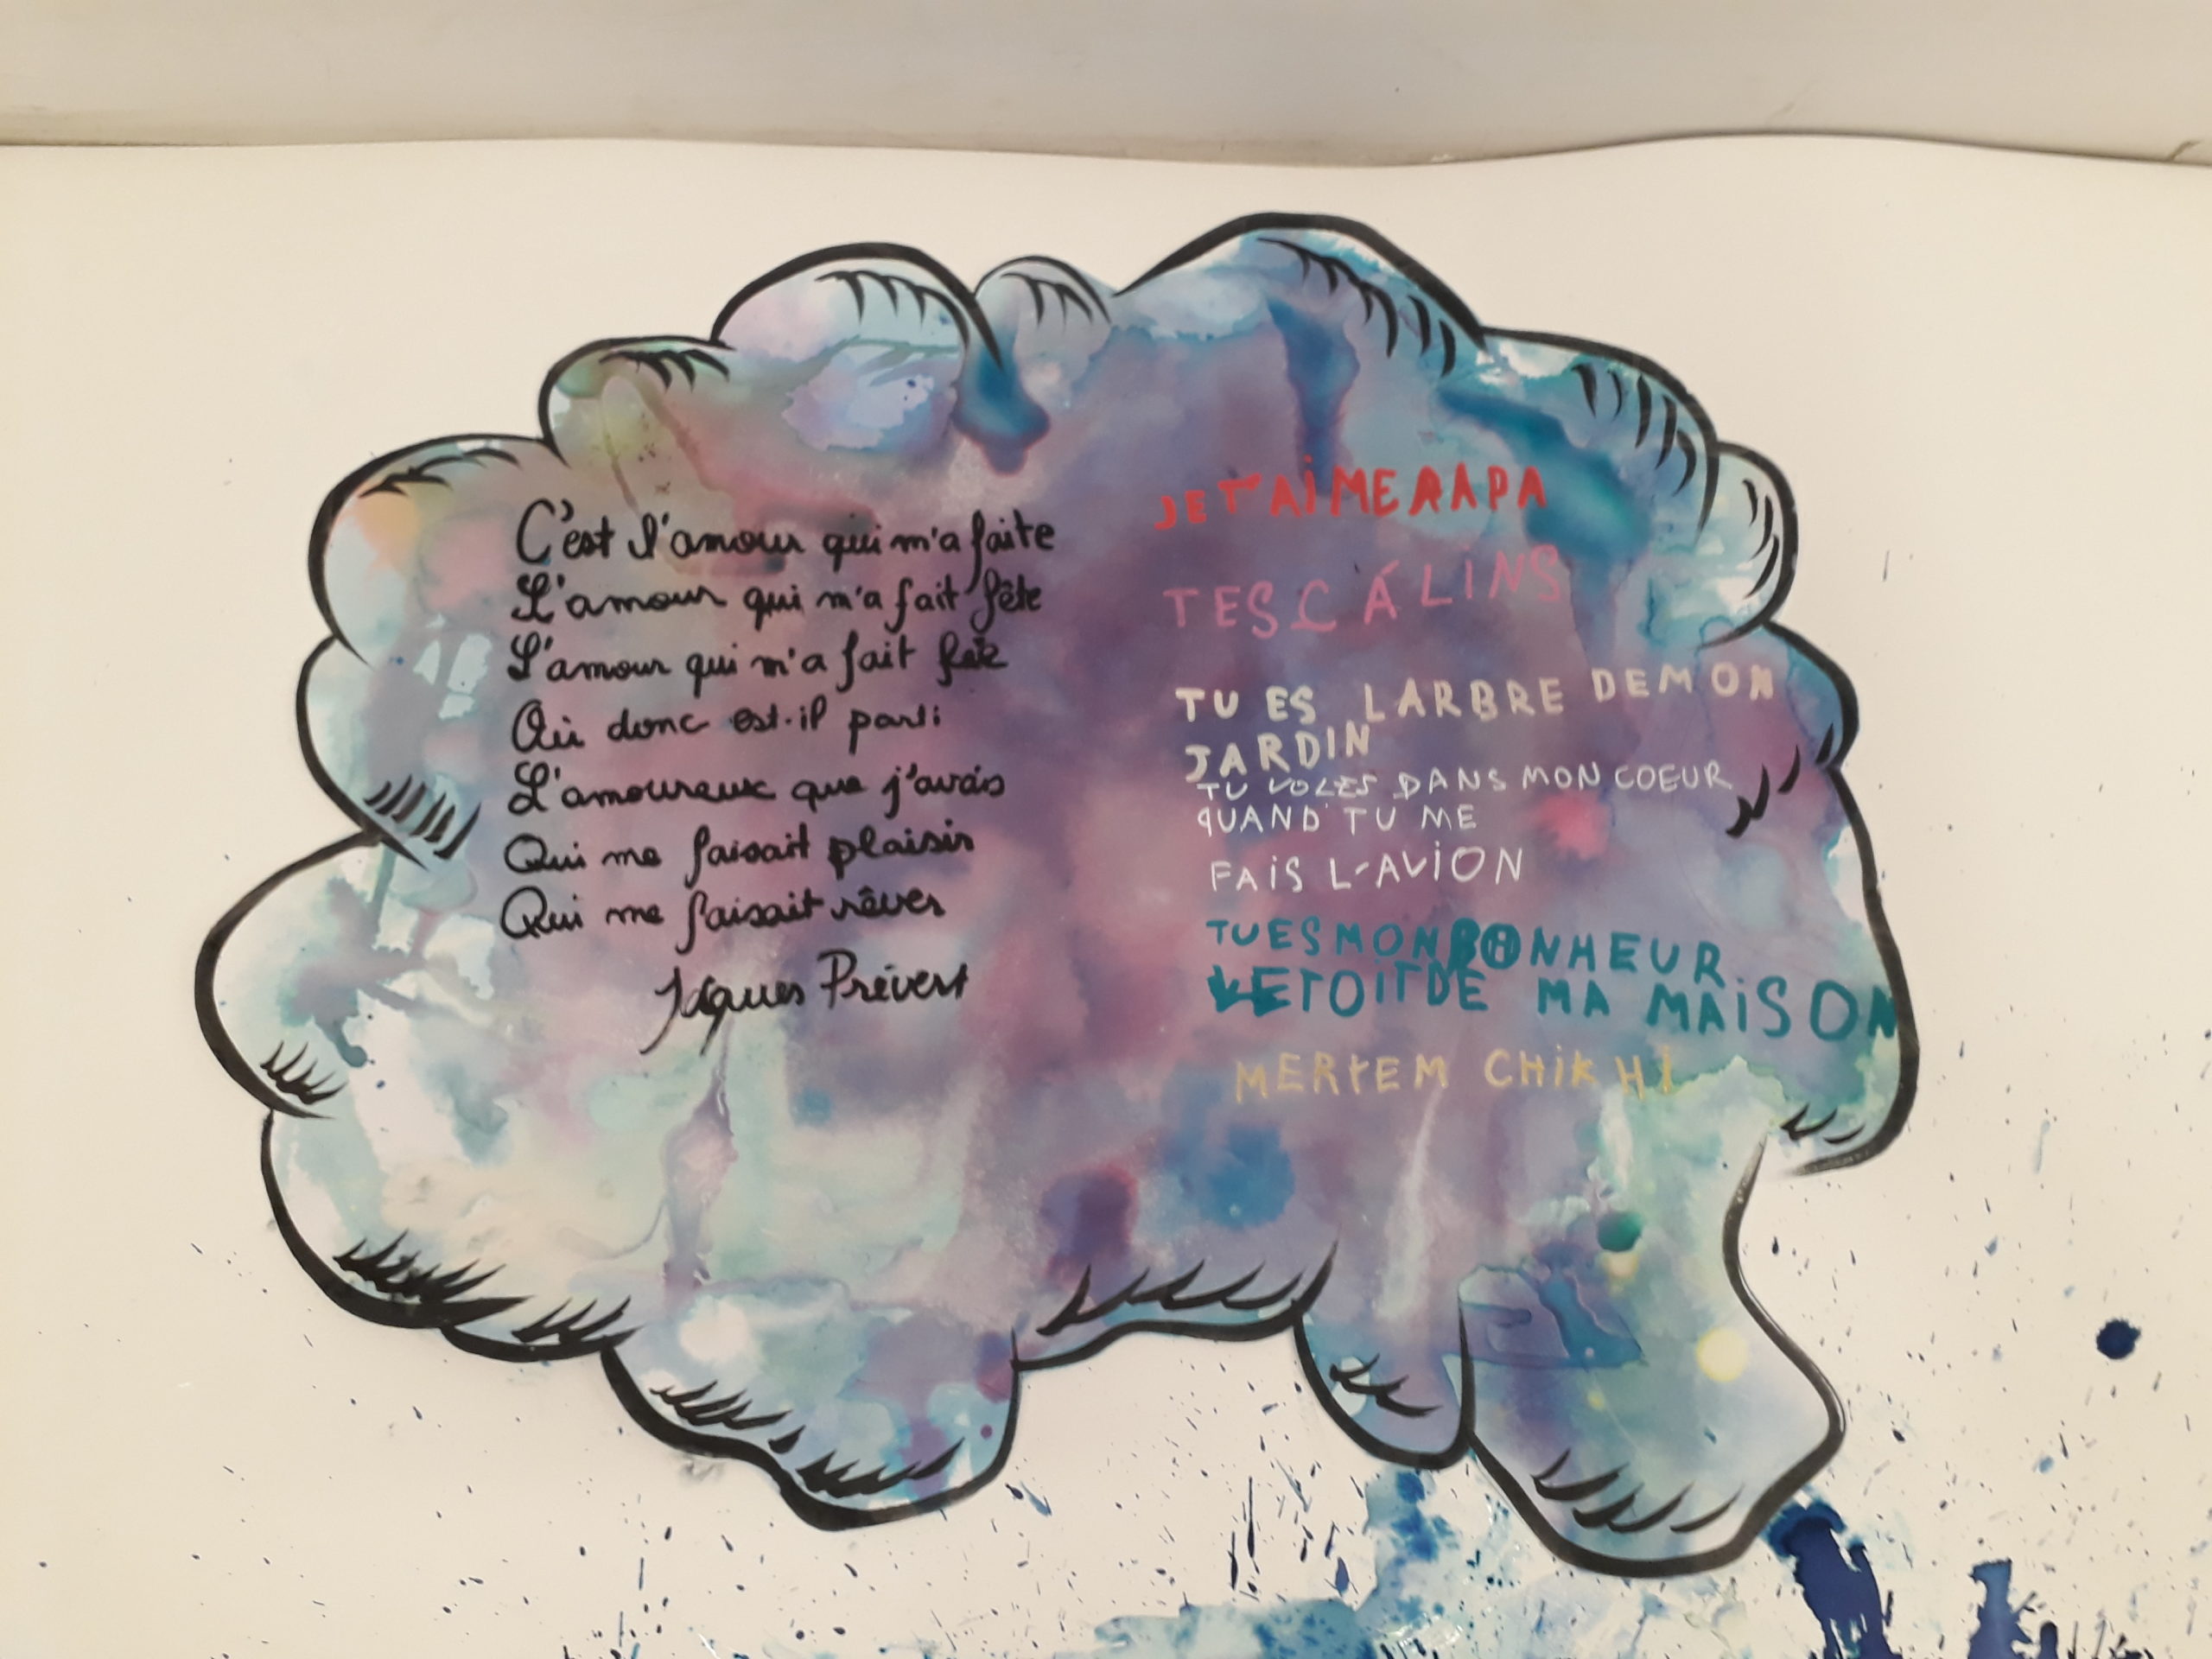 C'est l'amour qui m'a faite
L'amour qui m'a fait fête
L'amour qui m'a fait fête
Où donc est-il parti
L'amoureux que j'avais
Qui me faisait plaisir
Qui me faisait rêver
Jacques Prévert
JE T'AiME
TES CÁLiNS
TU ES LARBRE DE MON
JARDiN
TU VOLES DANS MON COEUR
QUAND TU ME
FAiS L'AViON
TU ES MON BONHEUR
LE TOiT DE MA MAiSON
MERYEM CHiKHi